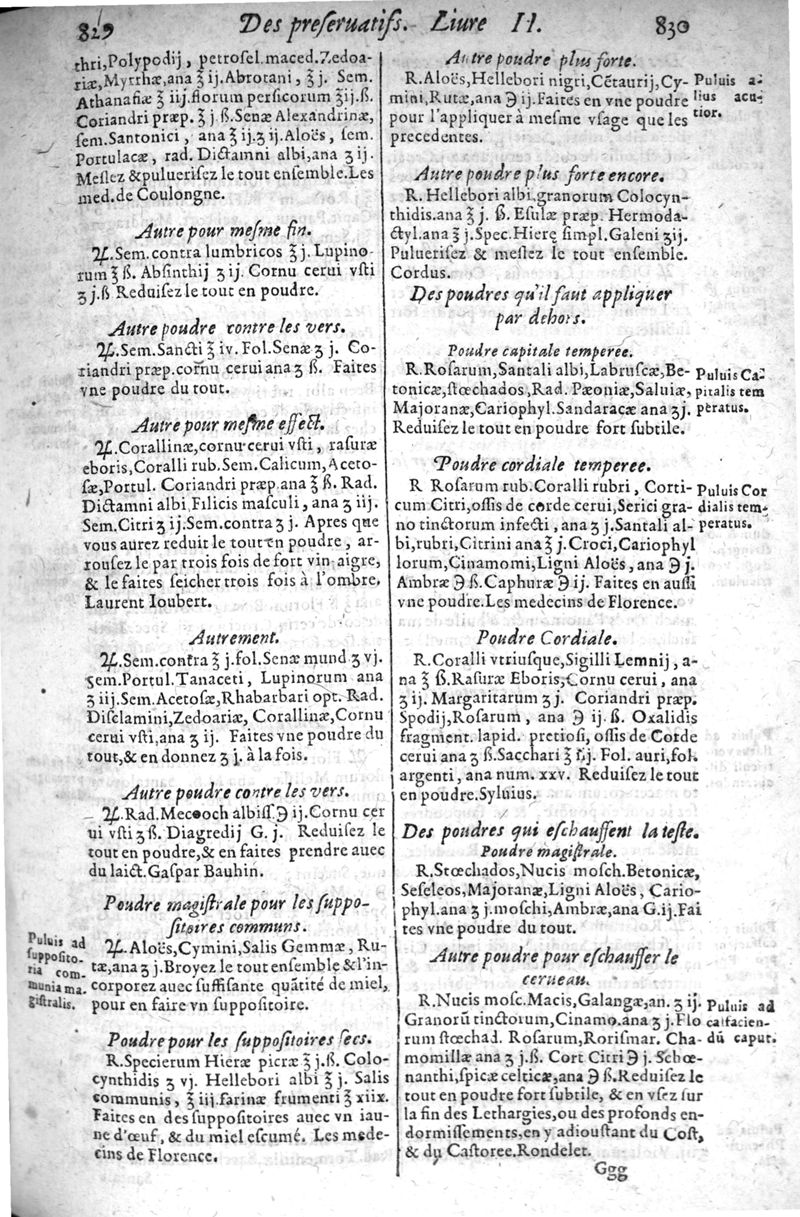 829 Des preſeruatifs. Liure II. 830
thri,Polypodij, petroſel.maced.Zedoa-
riæ,Myrrhæ,ana ℥ ij.Abrotani, ℥ j. Sem.
Athanaſiæ ℥ iij.florum perſicorum ℥ij.ß.
Coriandri præp. ℥ j.ß.Senæ Alexandrinæ,
ſem.Santonici, ana ℥ ij.ʒ ij.Aloës, ſem.
Portulacæ, rad. Dictamni albi,ana ʒ ij.
Meſlez &pulueriſez le tout enſemble.Les
med.de Coulongne.
Autre pour meſme fin.
℞.Sem.contra lumbricos ℥ j. Lupino-
rum ℥ ß. Abſinthij ʒ ij. Cornu cerui vſti
ʒ j.ß Reduiſez le tout en poudre.
Autre poudre contre les vers.
℞.Sem.Sancti ℥ iv. Fol.Senæ ʒ j. Co-
riandri præp.cornu cerui ana ʒ ß. Faites
vne poudre du tout.
Autre pour meſme effect.
℞.Corallinæ,cornu cerui vſti, raſuræ
eboris,Coralli rub.Sem.Calicum,Aceto-
ſæ,Portul. Coriandri præp ana ℥ ß. Rad.
Dictamni albi Filicis maſculi, ana ʒ iij.
Sem.Citri ʒ ij.Sem.contra ʒ j. Apres que
vous aurez reduit le tout en poudre, ar-
rouſez le par trois fois de fort vin-aigre,
& le faites ſeicher trois fois à l'ombre.
Laurent Ioubert.
Autrement.
℞.Sem.contra ℥ j.fol.Senæ mund ʒ vj.
Sem.Portul.Tanaceti, Lupinorum ana
ʒ iij.Sem.Acetoſæ,Rhabarbari opt. Rad.
Diſclamini,Zedoariæ, Corallinæ,Cornu
cerui vſti,ana ʒ ij. Faites vne poudre du
tout,& en donnez ʒ j. à la fois.
Autre poudre contre les vers.
℞.Rad.Mecooch albiſſ ℈ ij.Cornu cer
ui vſti ʒ ß. Diagredij G. j. Reduiſez le
tout en poudre,& en faites prendre auec
du laict.Gaſpar Bauhin.
Poudre magiſtrale pour les ſuppo-
ſitoires communs.
Puluis ad
ſuppoſito-
ria com-
munia ma-
giſtralis.
℞. Aloës,Cymini,Salis Gemmæ, Ru-
tæ,ana ʒ j.Broyez le tout enſemble &l'in-
corporez auec ſuffiſante quãtité de miel,
pour en faire vn ſuppoſitoire.
Poudre pour les ſuppoſitoires ſecs.
R.Specierum Hieræ picræ ℥ j.ß. Colo-
cynthidis ʒ vj. Hellebori albi ℥ j. Salis
communis, ℥ iij.farinæ frumenti ℥ xiix.
Faites en des ſuppoſitoires auec vn iau-
ne d'œuf, & du miel eſcumé. Les mede-
cins de Florence.
Autre poudre plus forte.
R.Aloës,Hellebori nigri,Cẽtaurij,Cy-
mini,Rutæ,ana ℈ ij.Faites en vne poudre
pour l'appliquer à meſme vſage que les
precedentes.
Puluis a-
lius acu-
tior.
Autre poudre plus forte encore.
R. Hellebori albi,granorum Colocyn-
thidis.ana ℥ j. ß. Eſulæ præp. Hermoda-
ctyl.ana ℥ j.Spec.Hierę ſimpl.Galeni ʒij.
Pulueriſez & meſlez le tout enſemble.
Cordus.
Des poudres qu'il faut appliquer
par dehors.
Poudre capitale temperee.
R.Roſarum,Santali albi,Labruſcæ,Be-
tonicæ,ſtœchados,Rad. Pæoniæ,Saluiæ,
Majoranæ,Cariophyl.Sandaracæ ana ʒ j.
Reduiſez le tout en poudre fort ſubtile.
Puluis Ca-
pitalis tem
peratus.
Poudre cordiale temperee.
R Roſarum rub.Coralli rubri, Corti-
cum Citri,oſſis de corde cerui,Serici gra-
no tinctorum infecti, ana ʒ j.Santali al-
bi,rubri,Citrini ana ℥ j. Croci,Cariophyl
lorum,Cinamomi,Ligni Aloës, ana ℈ j.
Ambræ ℈ ß.Caphuræ ℈ ij. Faites en auſſi
vne poudre.Les medecins de Florence.
Puluis Cor
dialis tem-
peratus.
Poudre Cordiale.
R.Coralli vtriuſque,Sigilli Lemnij, a-
na ℥ ß.Raſuræ Eboris,Cornu cerui, ana
ʒ ij. Margaritarum ʒ j. Coriandri præp.
Spodij,Roſarum, ana ℈ ij. ß. Oxalidis
fragment. lapid. pretioſi, oſſis de Corde
cerui ana ʒ ß.Sacchari ℥ ij. Fol. auri,fol.
argenti, ana num. xxv. Reduiſez le tout
en poudre.Syluius.
Des poudres qui eſchauffent la teſte.
Poudre magiſtrale.
R.Stœchados,Nucis moſch.Betonicæ,
Seſeleos,Majoranæ,Ligni Aloës, Cario-
phyl.ana ʒ j.moſchi,Ambræ,ana G.ij.Fai
tes vne poudre du tout.
Autre poudre pour eſchauffer le
cerueau.
R.Nucis moſc.Macis,Galangæ,an. ʒ ij.
Granorũ tinctorum,Cinamo.ana ʒ j.Flo
rum ſtœchad. Roſarum,Roriſmar. Cha-
momillæ ana ʒ j.ß. Cort Citri ℈ j. Schœ-
nanthi,ſpicæ celticæ,ana ℈ ß.Reduiſez le
tout en poudre fort ſubtile, & en vſez ſur
la fin des Lethargies,ou des profonds en-
dormiſſements,en y adiouſtant du Coſt,
& du Caſtoree.Rondelet.
Puluis ad
calfacien-
dũ caput.
Ggg